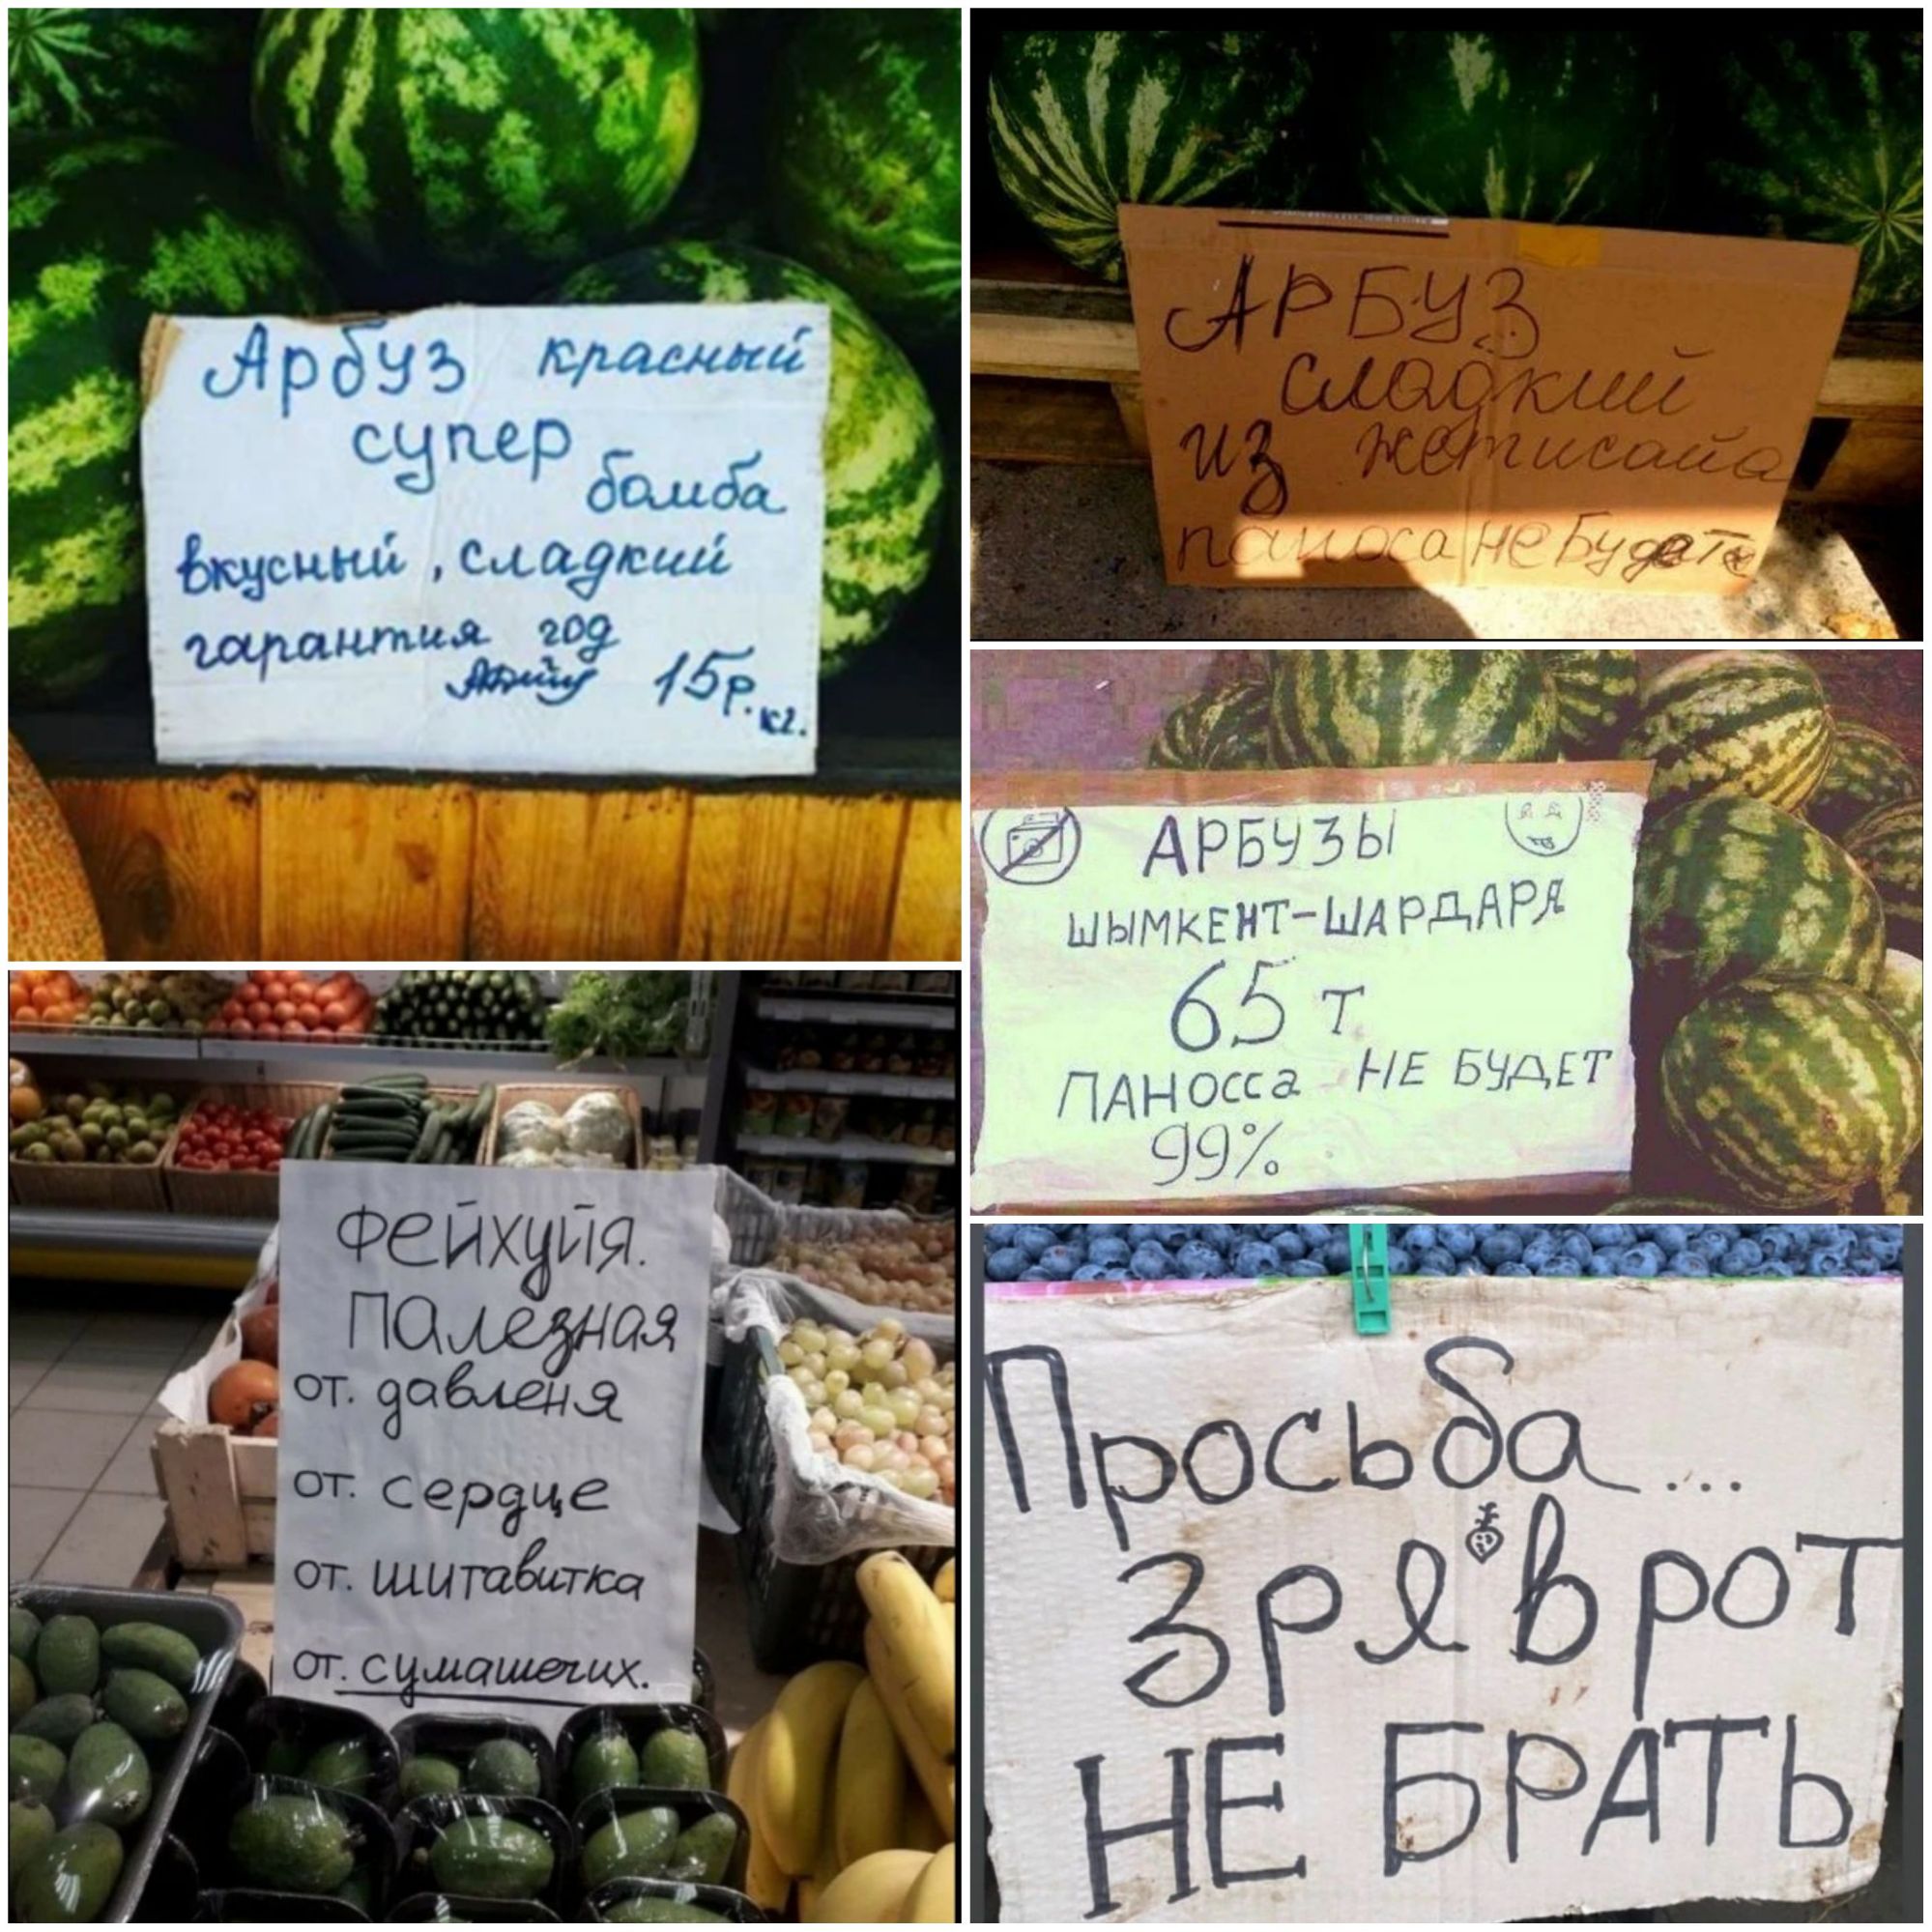 Арбуз красный
супер
бомба
вкусный, сладкий
гарантия год
15р.кг.
АРБУЗ
сладкий
из жетисайа
паноса не Будет
АРБУЗЫ
ШЫМКЕНТ-ШАРДАРЯ
65 т
ПАНОССа НЕ БУДЕТ
99%
ФЕЙХУЙЯ.
ПАЛЕЗНАЯ
от. давленя
от. сердце
от. шитавитка
от. сумашечих.
Просьба...
зря в рот
НЕ БРАТЬ